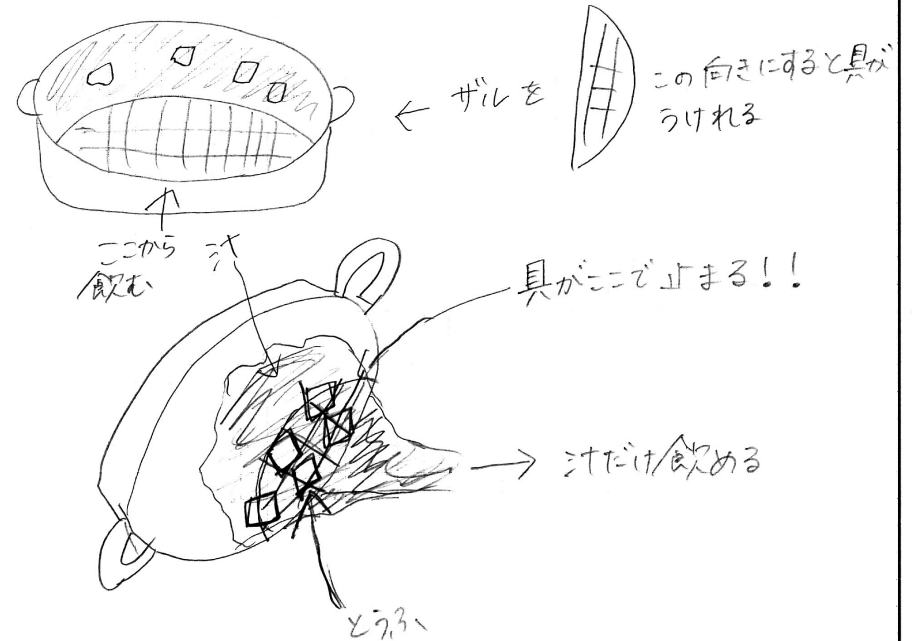 ← ザルを
この向きにすると具が
うけれる
ここから
飲む
汁
具がここで止まる!!
→ 汁だけ飲める
とうふ